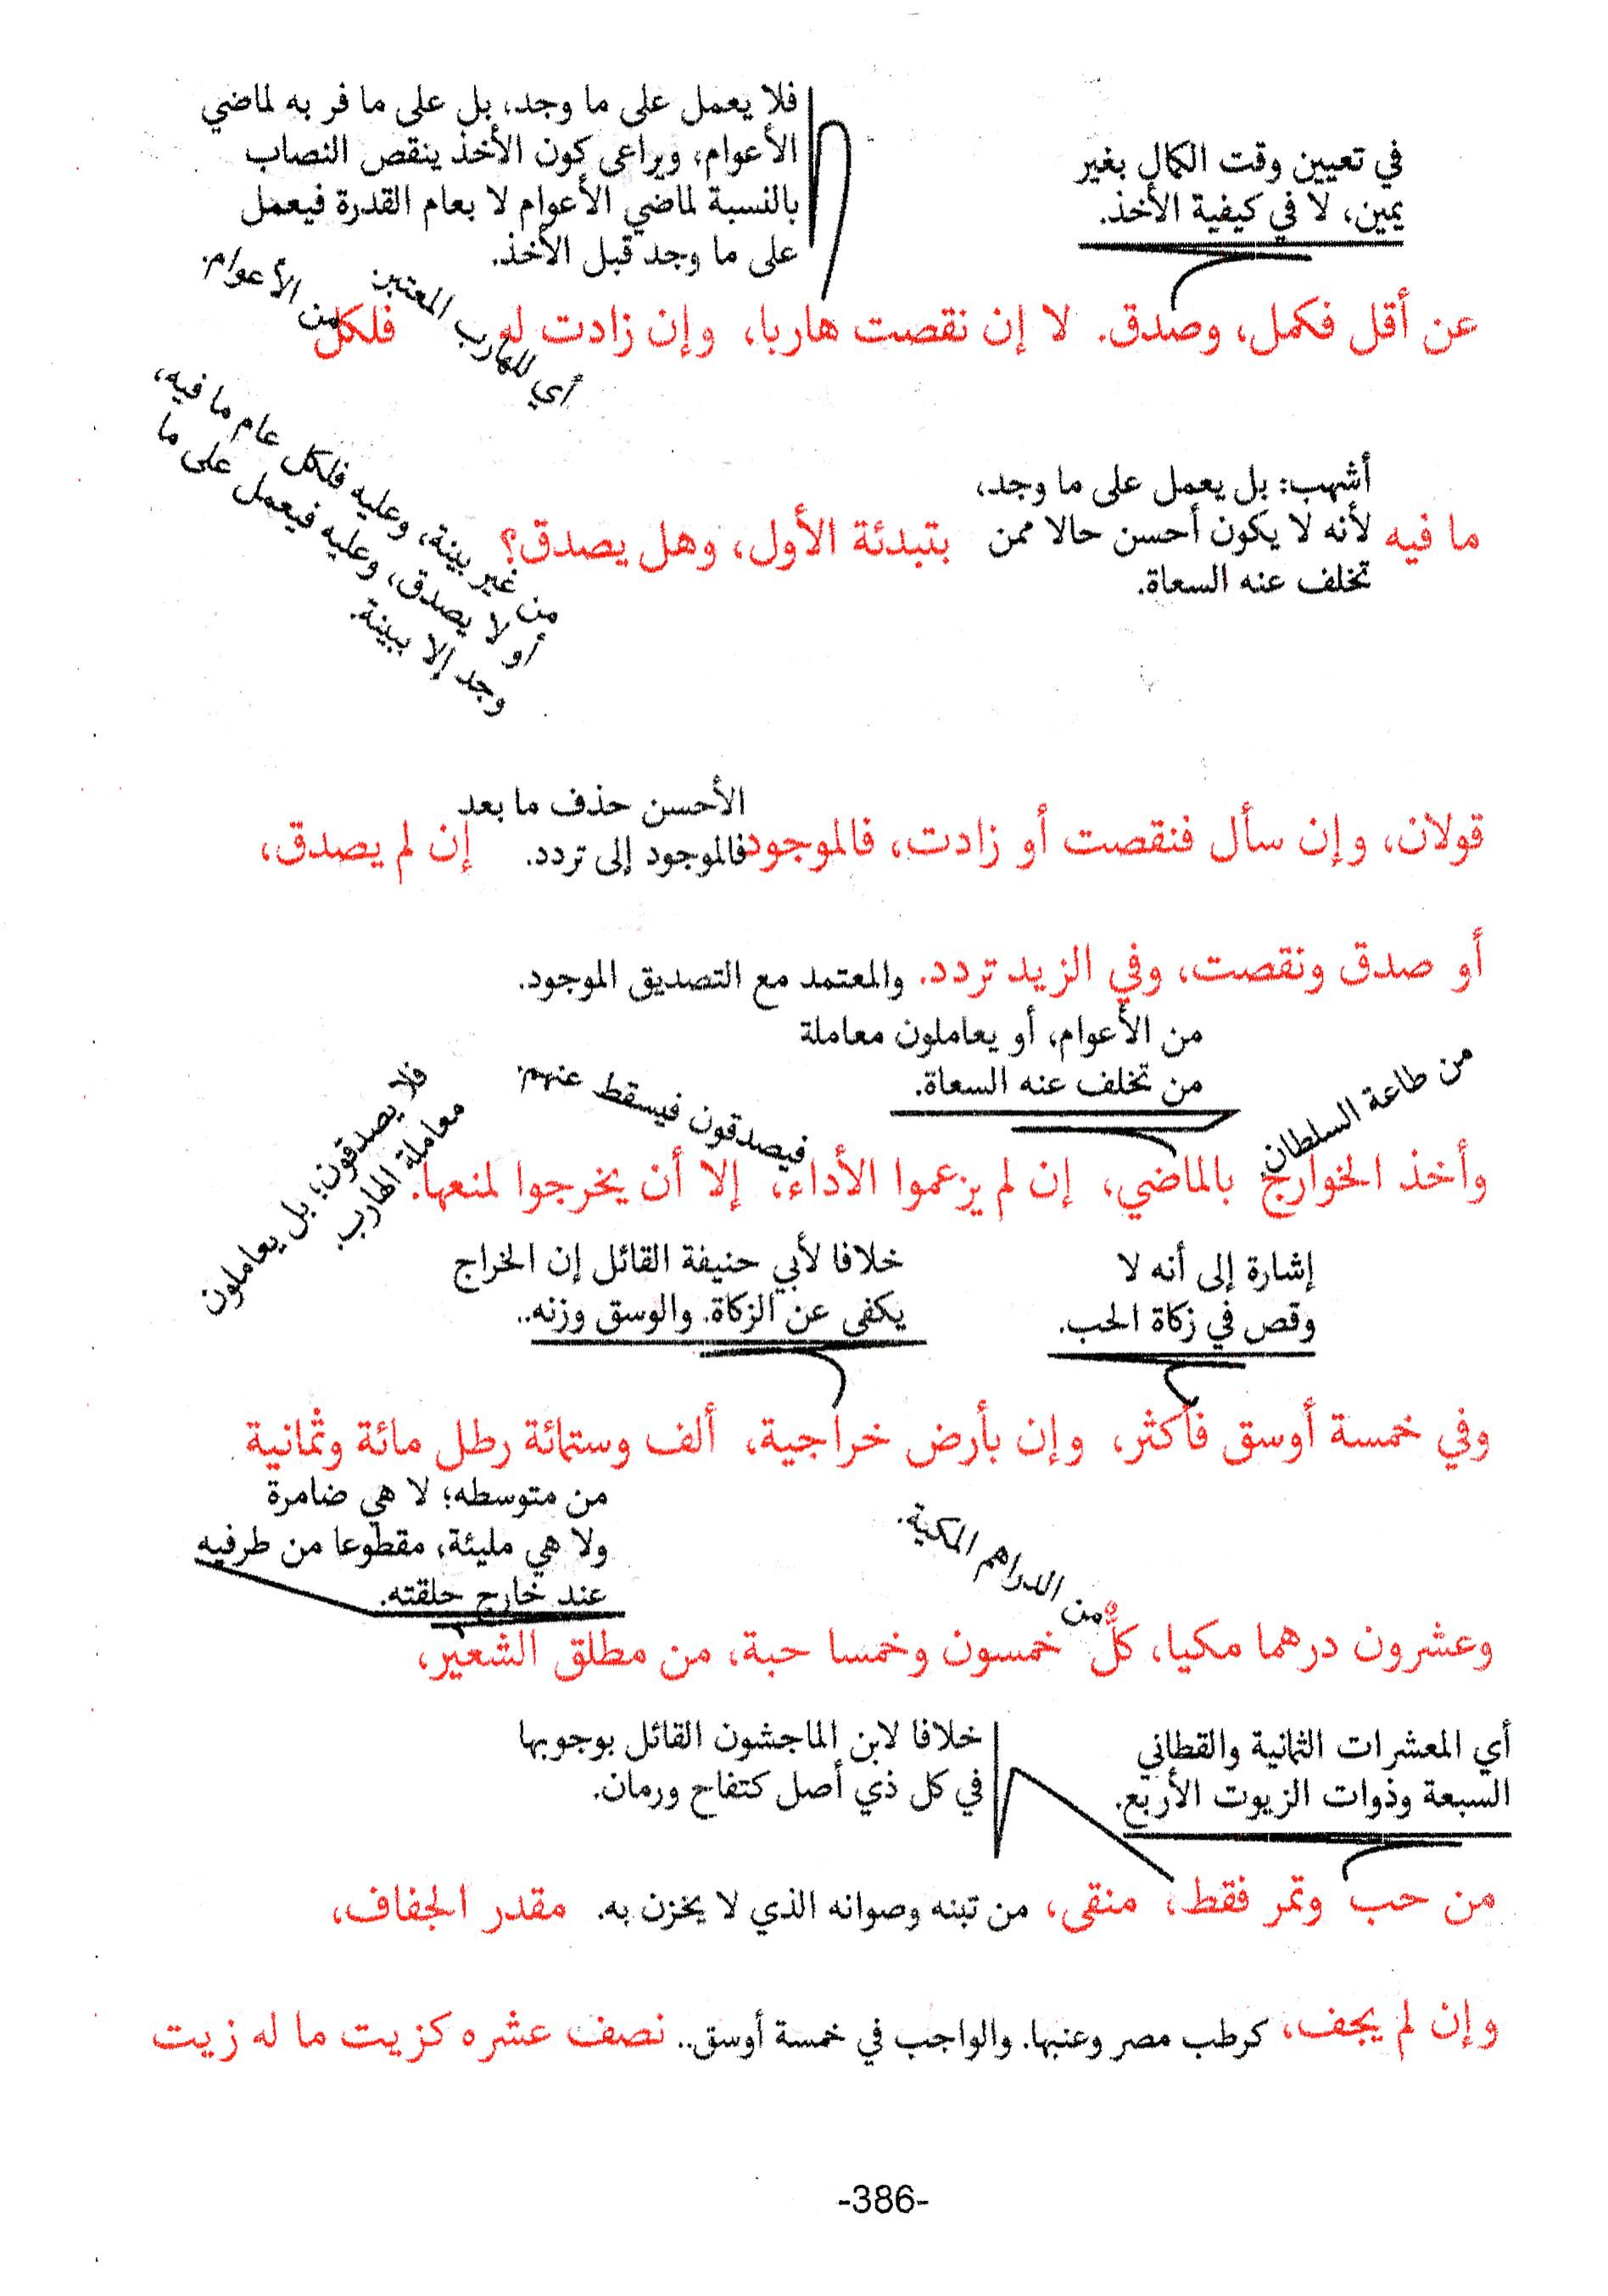 فلا يعمل على ما وجد، بل على ما فر به لماضي
الأعوام، ويراعى كون الأخذ ينقص النصاب
بالنسبة لماضي الأعوام لا بعام القدرة فيعمل
على ما وجد قبل الأخذ.
في تعيين وقت الكمال بغير
يمين، لا في كيفية الأخذ.
أي للهارب المعتبر.
من الأعوام.
عن أقل فكمل، وصدق. لا إن نقصت هاربا، وإن زادت له فلكل
أشهب: بل يعمل على ما وجد،
لأنه لا يكون أحسن حالا ممن
تخلف عنه السعاة.
ما فيه بتبدئة الأول، وهل يصدق؟
من غير بينة، وعليه فلكل عام ما فيه،
أو لا يصدق، وعليه فيعمل على ما
وجد إلا ببينة.
الأحسن حذف ما بعد
فالموجود إلى تردد.
قولان، وإن سأل فنقصت أو زادت، فالموجود إن لم يصدق،
أو صدق ونقصت، وفي الزيد تردد. والمعتمد مع التصديق الموجود.
من طاعة السلطان.
من الأعوام، أو يعاملون معاملة
من تخلف عنه السعاة.
فيصدقون فيسقط عنهم.
فلا يصدقون؛ بل يعاملون
معاملة الهارب.
وأخذ الخوارج بالماضي، إن لم يزعموا الأداء، إلا أن يخرجوا لمنعها.
إشارة إلى أنه لا
وقص في زكاة الحب.
خلافا لأبي حنيفة القائل إن الخراج
يكفي عن الزكاة. والوسق وزنه..
وفي خمسة أوسق فأكثر، وإن بأرض خراجية، ألف وستمائة رطل مائة وثمانية
من الدراهم المكية.
من متوسطه؛ لا هي ضامرة
ولا هي مليئة، مقطوعا من طرفيه
عند خارج حلقته.
وعشرون درهما مكيا، كلٌّ خمسون وخمسا حبة، من مطلق الشعير،
أي المعشرات الثمانية والقطاني
السبعة وذوات الزيوت الأربع.
خلافا لابن الماجشون القائل بوجوبها
في كل ذي أصل كتفاح ورمان.
من حب وتمر فقط، منقى، من تبنه وصوانه الذي لا يخزن به. مقدر الجفاف،
وإن لم يجف، كرطب مصر وعنبها. والواجب في خمسة أوسق.. نصف عشره كزيت ما له زيت
-386-